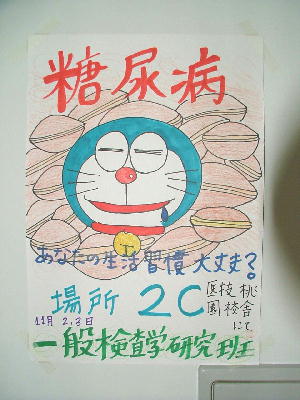 糖尿病
あなたの生活習慣 大丈夫?
場所 2C 医技 桃園校舎にて
11月 2,3日
一般検査学研究班